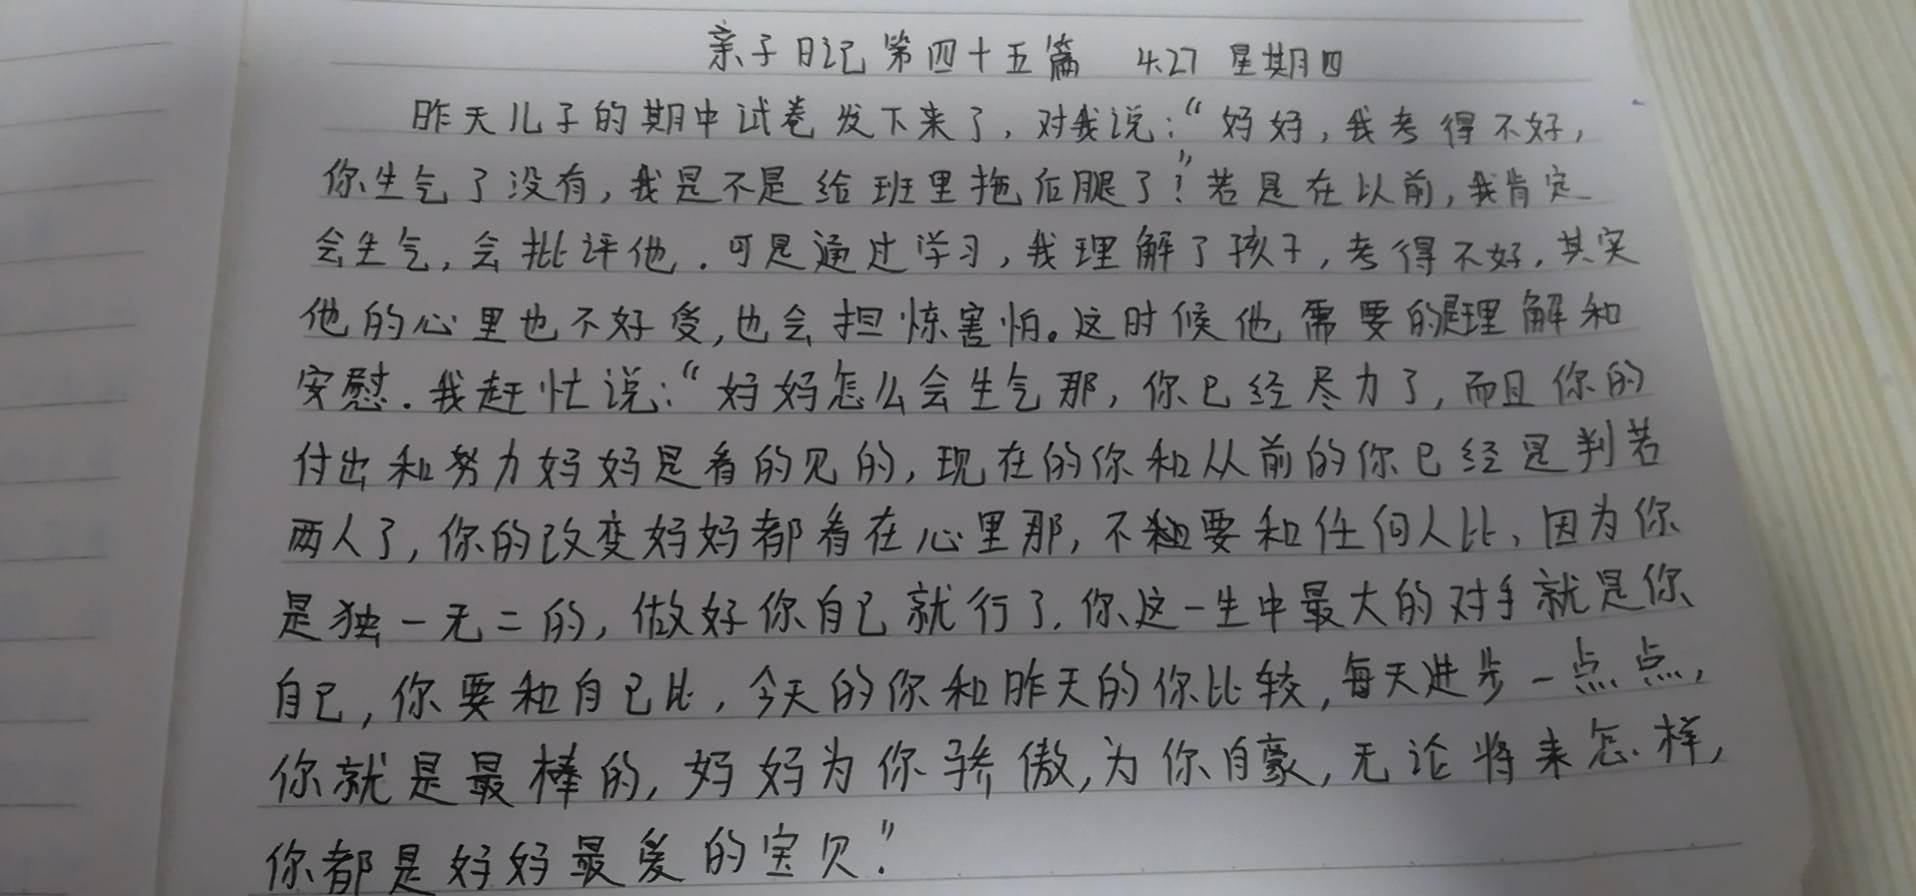 亲子日记第四十五篇 4.27 星期四
昨天儿子的期中试卷发下来了，对我说：“妈妈，我考得不好，
你生气了没有，我是不是给班里拖后腿了？”若是在以前，我肯定
会生气，会批评他．可是通过学习，我理解了孩子，考得不好，其实
他的心里也不好受，也会担惊害怕。这时候他需要的是理解和
安慰．我赶忙说：“妈妈怎么会生气那，你已经尽力了，而且你的
付出和努力妈妈是看的见的，现在的你和从前的你已经是判若
两人了，你的改变妈妈都看在心里那，不要和任何人比，因为你
是独一无二的，做好你自己就行了．你这一生中最大的对手就是你
自己，你要和自己比，今天的你和昨天的你比较，每天进步一点点，
你就是最棒的，妈妈为你骄傲，为你自豪，无论将来怎样，
你都是妈妈最爱的宝贝．”